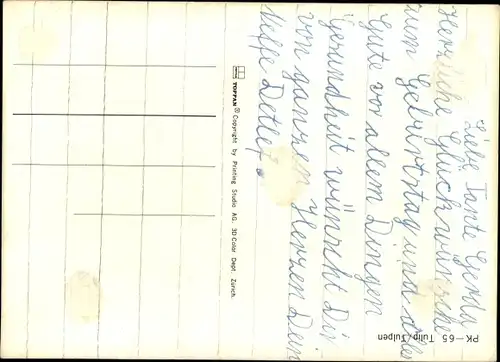 Liebe Tante Gerda,
Herzliche Glückwünsche
zum Geburtstag und alles
Gute vor allem Dingen
Gesundheit wünscht Dir
von ganzen Herzen Dein
Neffe Detlef.
TOPPAN® Copyright by Printing Studio AG. 3D Color Dept. Zürich.
PK—65 Tulip/Tulpen